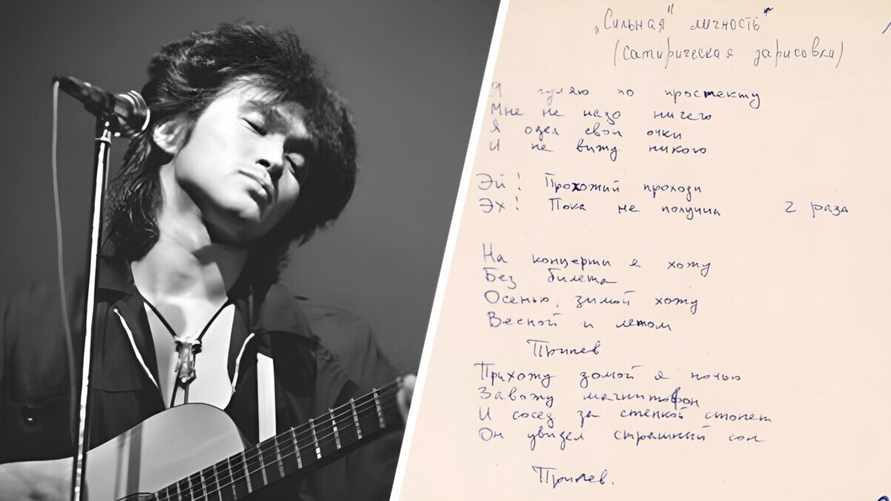 „Сильная" личность"
(сатирическая зарисовка)
Я гуляю по проспекту
Мне не надо ничего
Я одел свои очки
И не вижу никого
Эй! Прохожий проходи
Эх! Пока не получил 2 раза
На концерты я хожу
Без билета
Осенью, зимой хожу
Весной и летом
Припев
Прихожу домой я ночью
Завожу магнитофон
И сосед за стенкой стонет
Он увидел страшный сон
Припев.